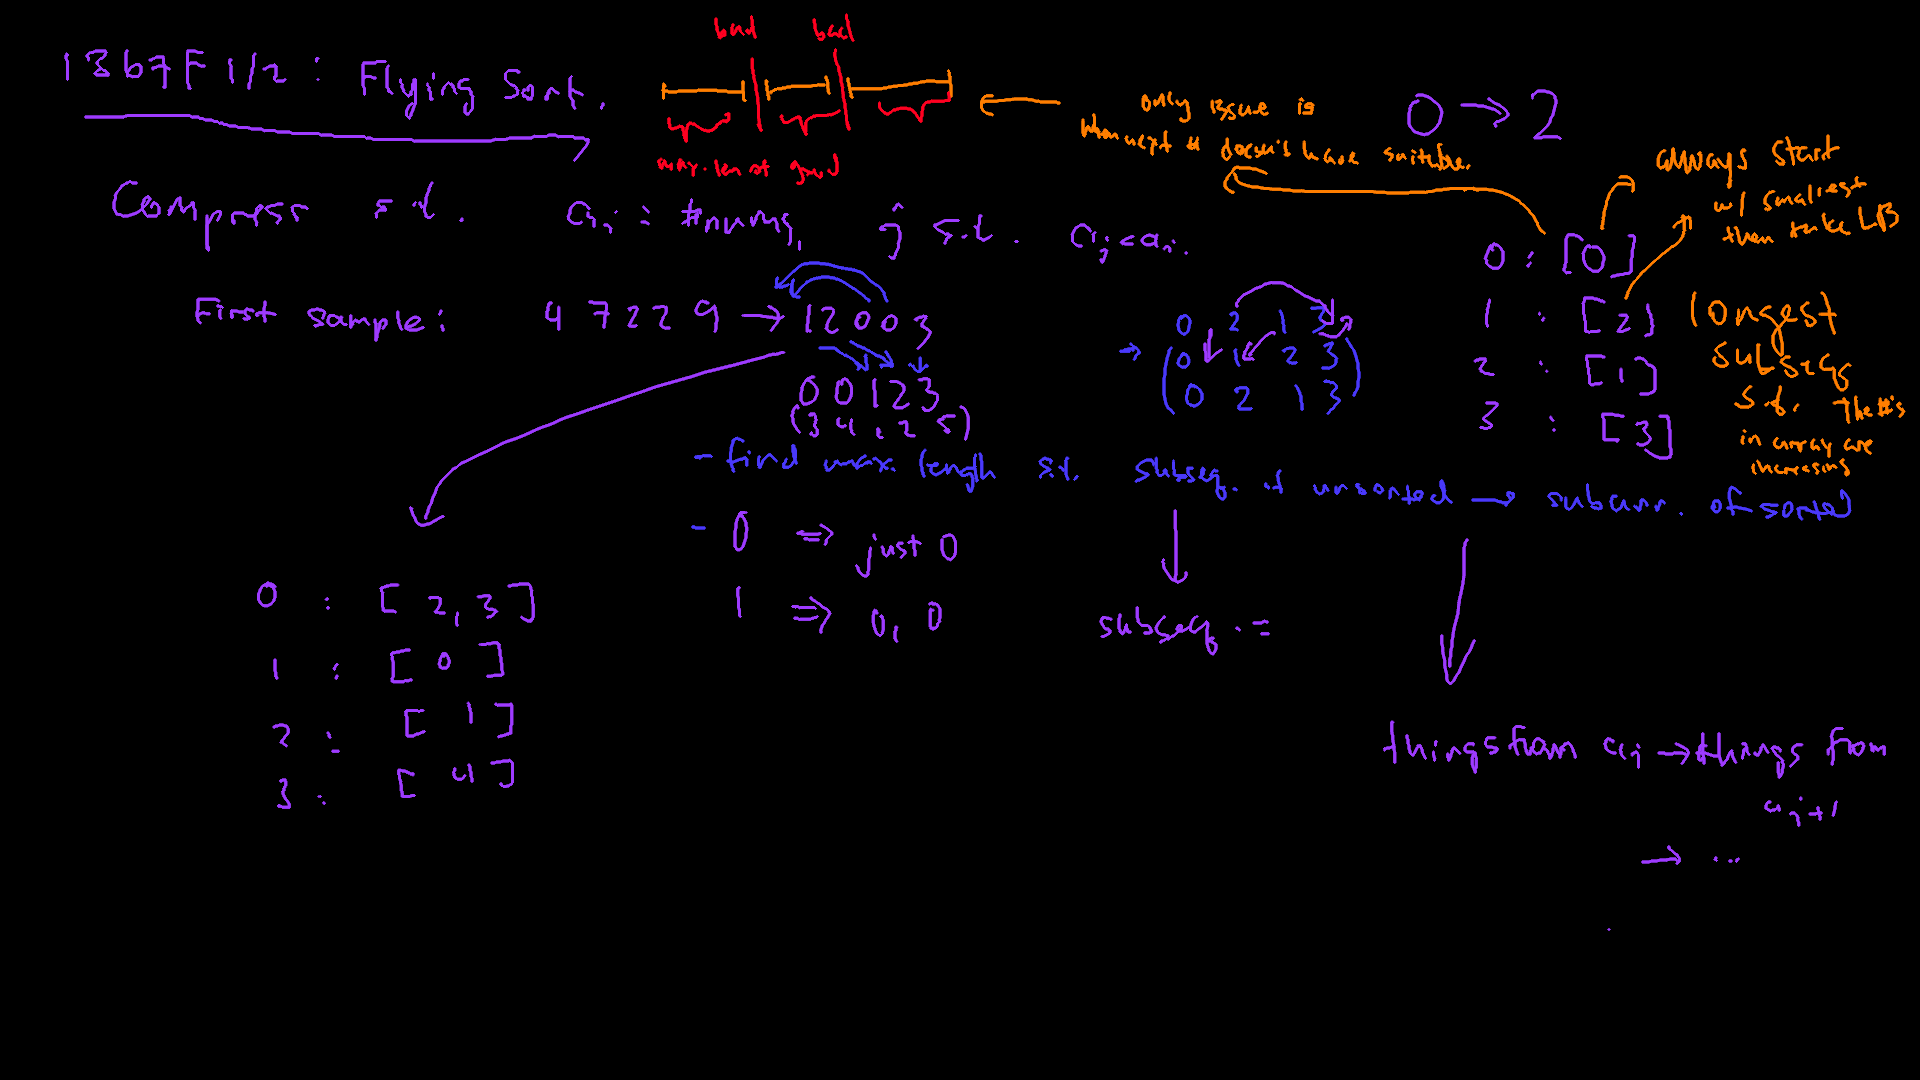 1367F1/2: Flying Sort.
bad bad
max. len of good
only issue is
when next # doesn't have suitable.
0 → 2
always start
w/ smallest
then take LB
Compress s.t. ai = #nums, j s.t. aj < ai.
First sample: 4 7 2 2 9 → 1 2 0 0 3
0 0 1 2 3
(3 4 1 2 5)
0 2 1 3
→ (0 1 2 3
0 2 1 3)
0 : [0]
1 : [2]
2 : [1]
3 : [3]
longest
subseq
s.t. the #'s
in array are
increasing
- find max. length s.t. subseq. of unsorted → subarr. of sorted
- 0 ⇒ just 0
1 ⇒ 0, 0
subseq. =
0 : [2, 3]
1 : [0]
2 : [1]
3 : [4]
things from ai → things from
ai+1
→ ...